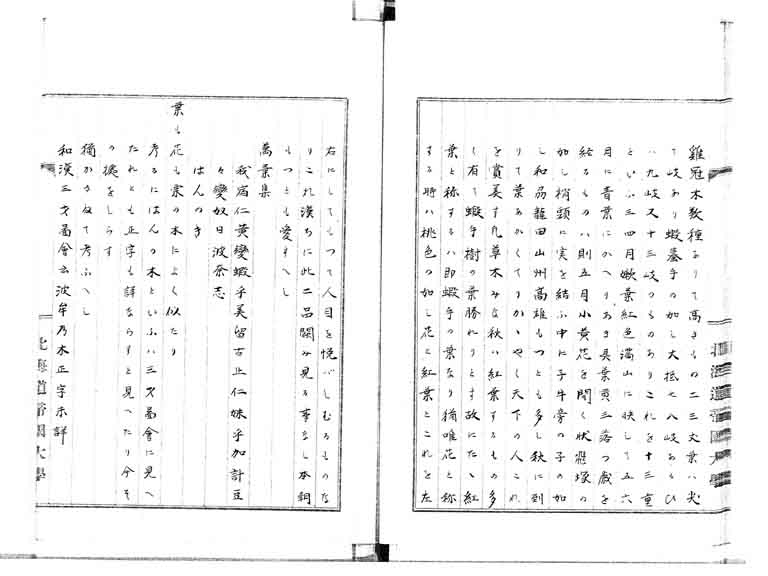 雞冠木数種ありて高きもの二三丈葉ハ尖
て岐あり蝦蟇手の如し大抵七八岐あるひ
ハ九岐又十三岐のものありこれを十三重
といふ三四月嫩葉紅色満山に映して五六
月に青葉にかへりあき具葉黄三落つ戯を
経るものハ則五月小黄花を開く状
如し梢頭に実を結ふ中に子牛蒡の子の如
し和州龍田山州高雄もつとも多し秋に到
りて葉あかくてりかゝやく天下の人これ
を賞美す凡草木みな秋ハ紅葉するもの多
し有て蝦手樹の葉勝れりとす故にたゝ紅
葉と称するハ即蝦手の葉なり猶唯花と称
する時ハ桃色の如し花と紅葉とこれを左
北海道帝國大學
右にしてもつて人目を悦バしむるものな
りこれ漢ちに此二品関み見る事なし本朝
もつとも愛すへし
萬葉集
我宿仁黄變蝦手美留古止仁妹乎加計豆
々變奴日波奈志
はんのき
葉も花も栗の木によく似たり
考るにはんの木といふハ三才圖會に見へ
たれとも正字も詳ならすと見へたり今そ
の換をしらす
猶かさねて考ふへし
和漢三才圖會云波牟乃木正字未詳
北海道帝國大學